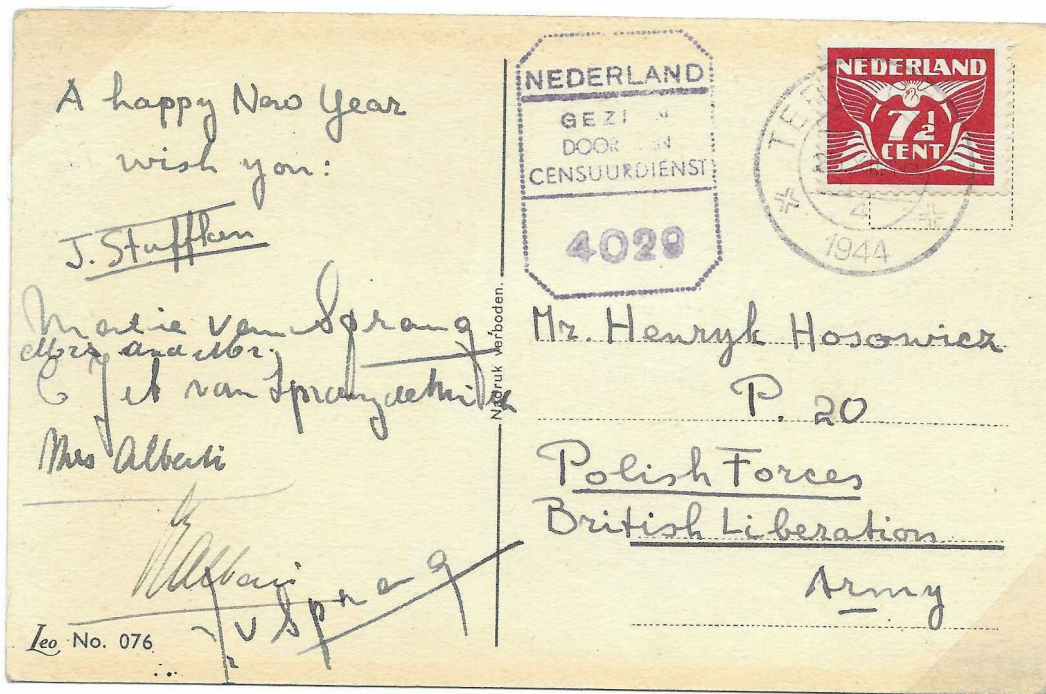 A happy New Year
wish you:
J. Stuffken
Marie van Sprang
Mrs and Mr.
van Sprang
Mrs Alberti
Alberti
v Sprang
Leo No. 076
Nadruk verboden.
NEDERLAND
GEZI N
DOOR N
CENSUURDIENST
4029
NEDERLAND
7½
CENT
1944
Mr. Henryk Hosowicz
P. 20
Polish Forces
British Liberation
Army